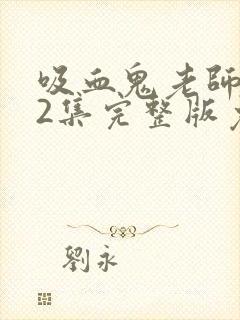 吸血鬼老師
2集完整版
劉永